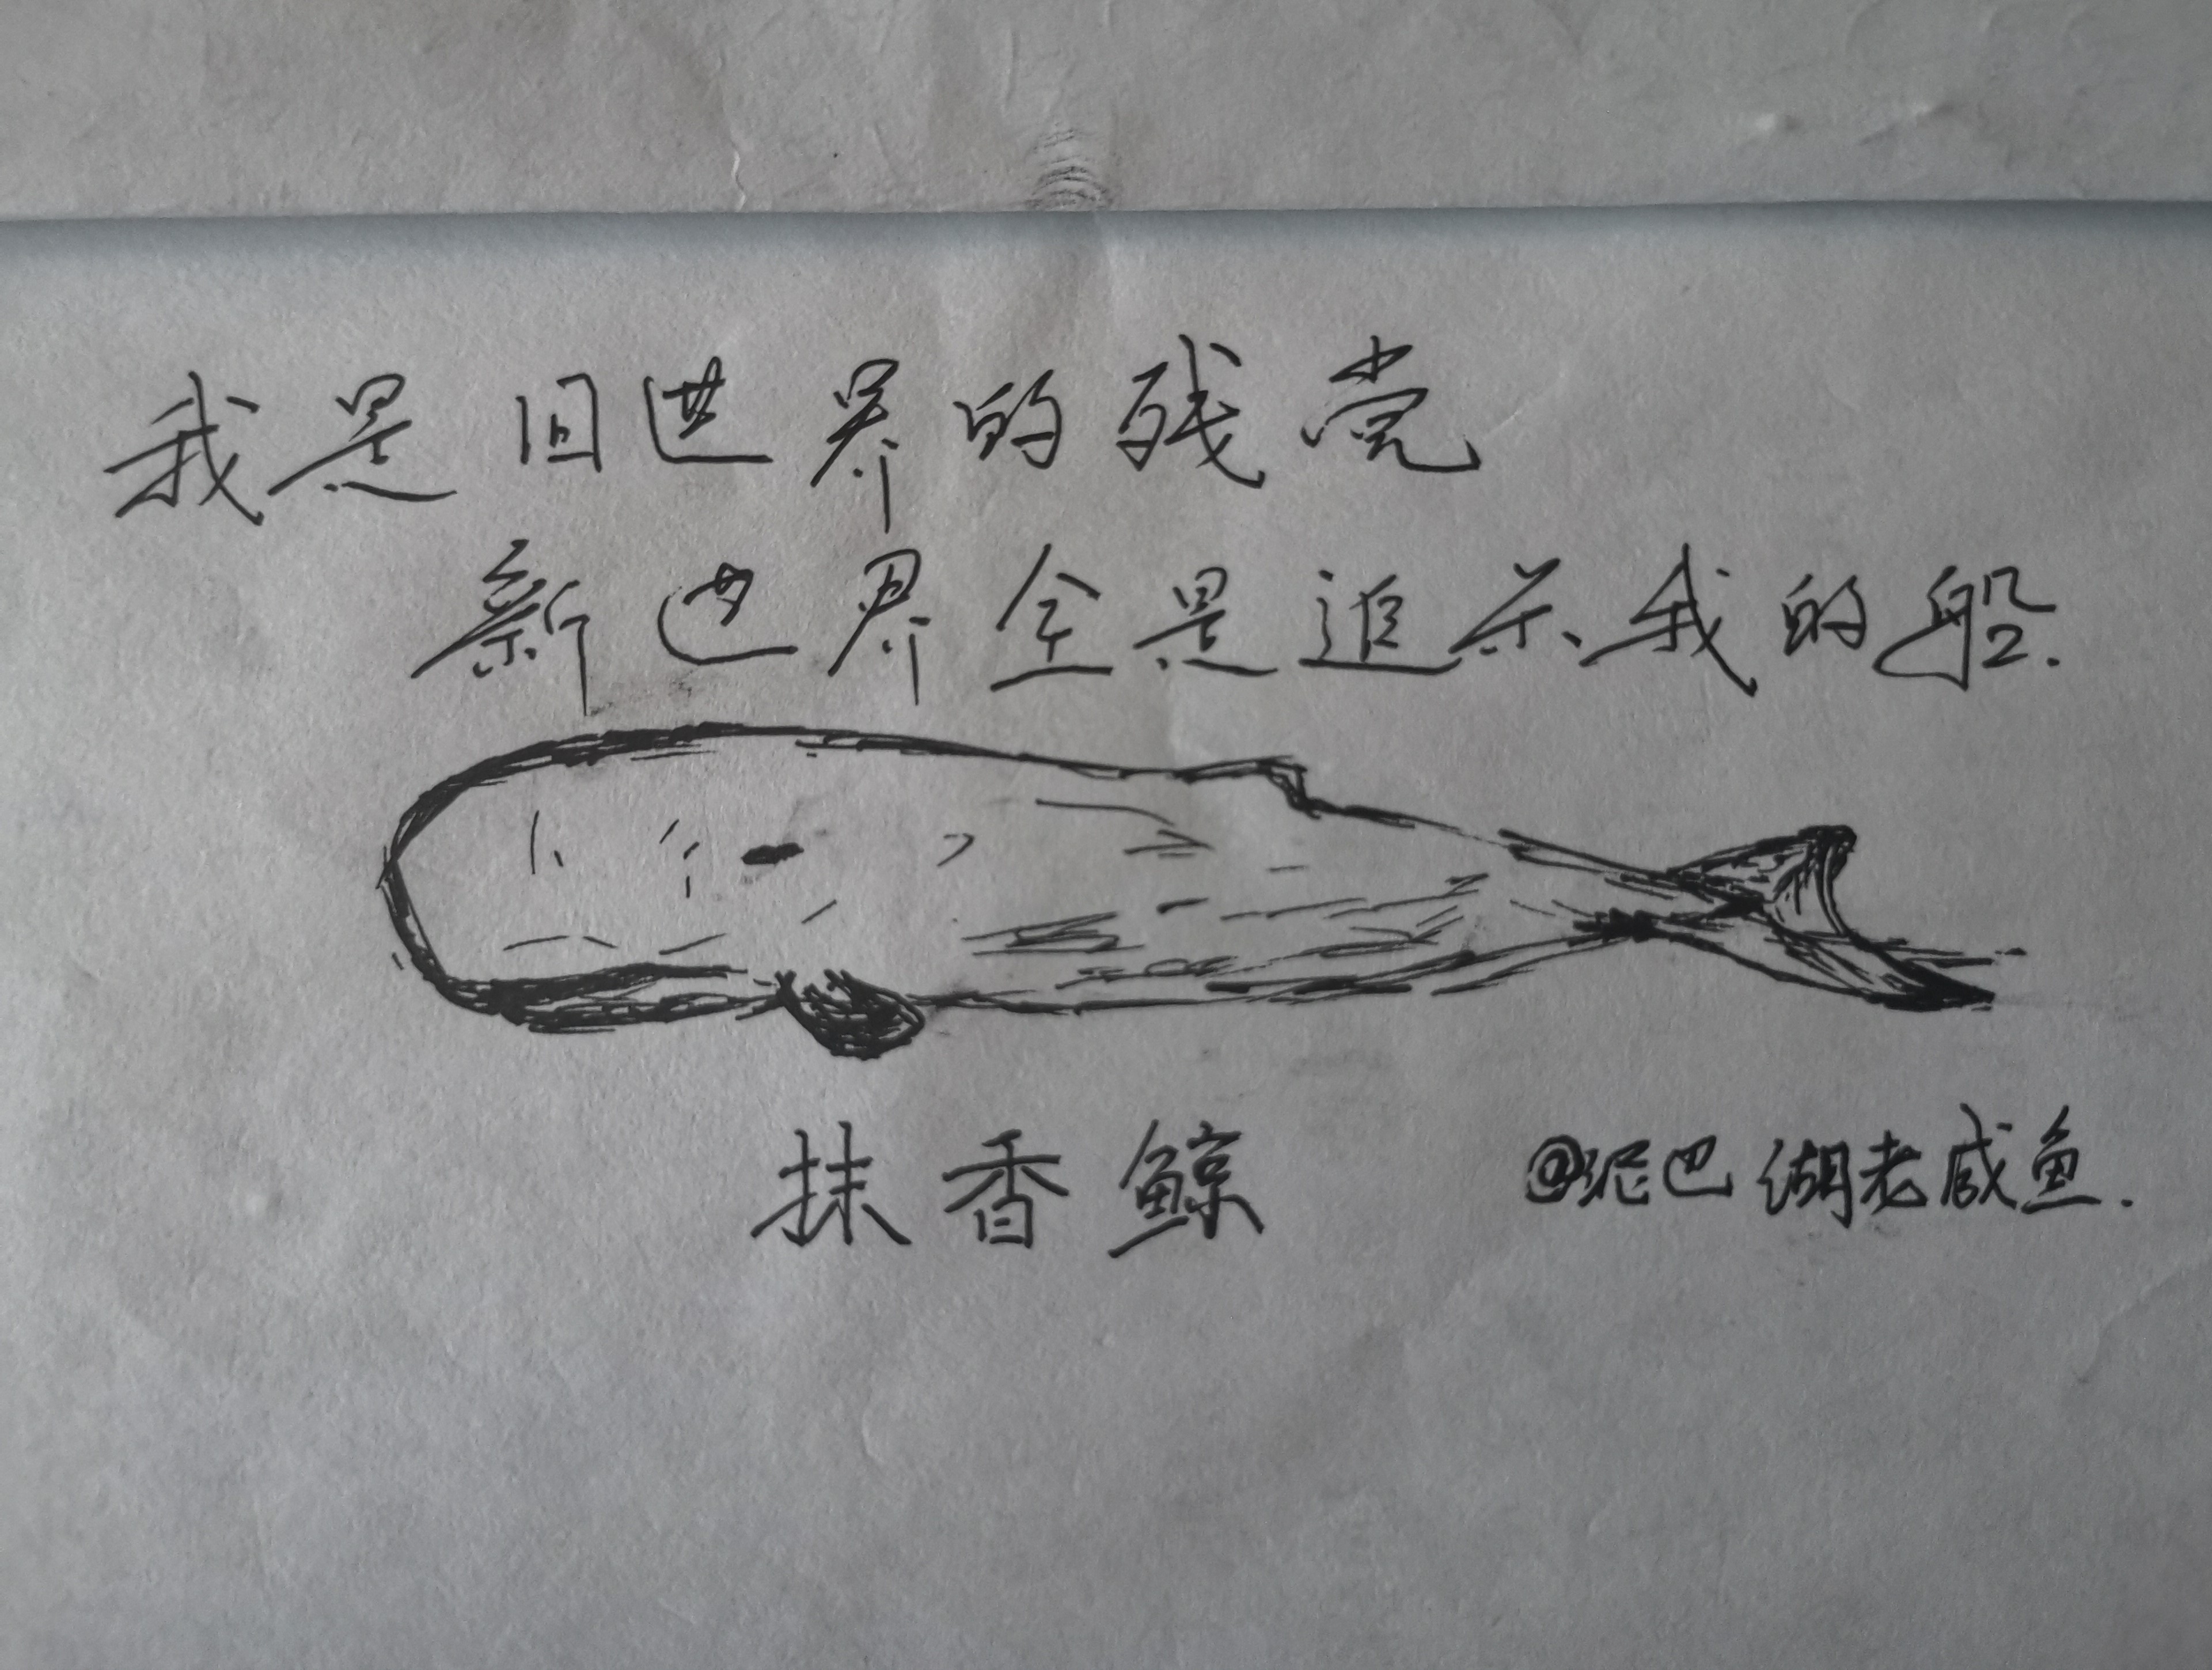 我是旧世界的残党
新世界全是追杀我的船.
抹香鲸
@泥巴湖老咸鱼.